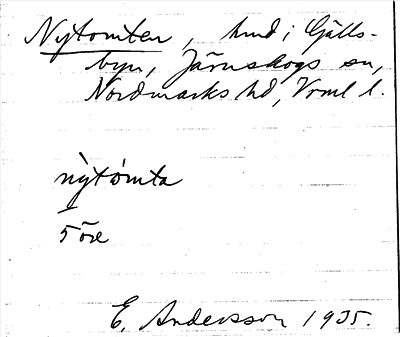 Nytomten, hmd i Gälls-
byn, Järnskogs sn,
Nordmarks hd, Vrml l.
nỳtómta
5 öre
E. Andersson 1935.